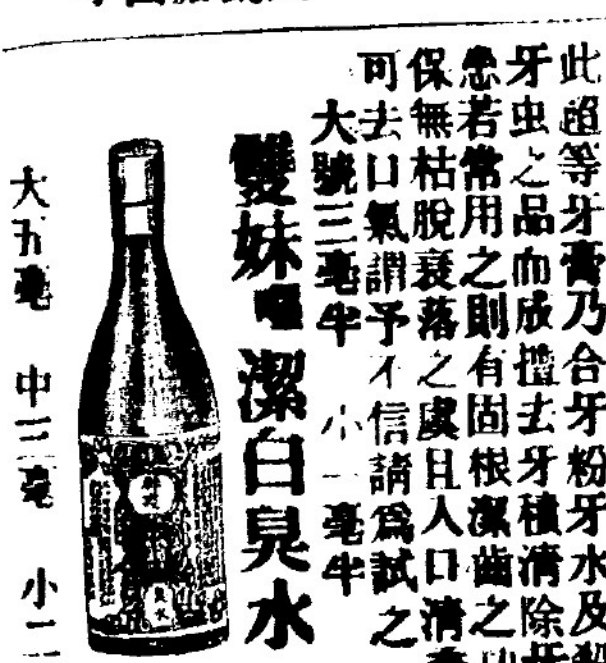 此超等牙膏乃合牙粉牙水及殺
牙虫之品而成擅去牙積清除牙
患若常用之則有固根潔齒之
保無枯脫衰落之虞且入口清香
可去口氣謂予不信請爲試之
大號三毫半 小一毫半
雙妹嚜潔白臭水
大五毫 中三毫 小二
臭水